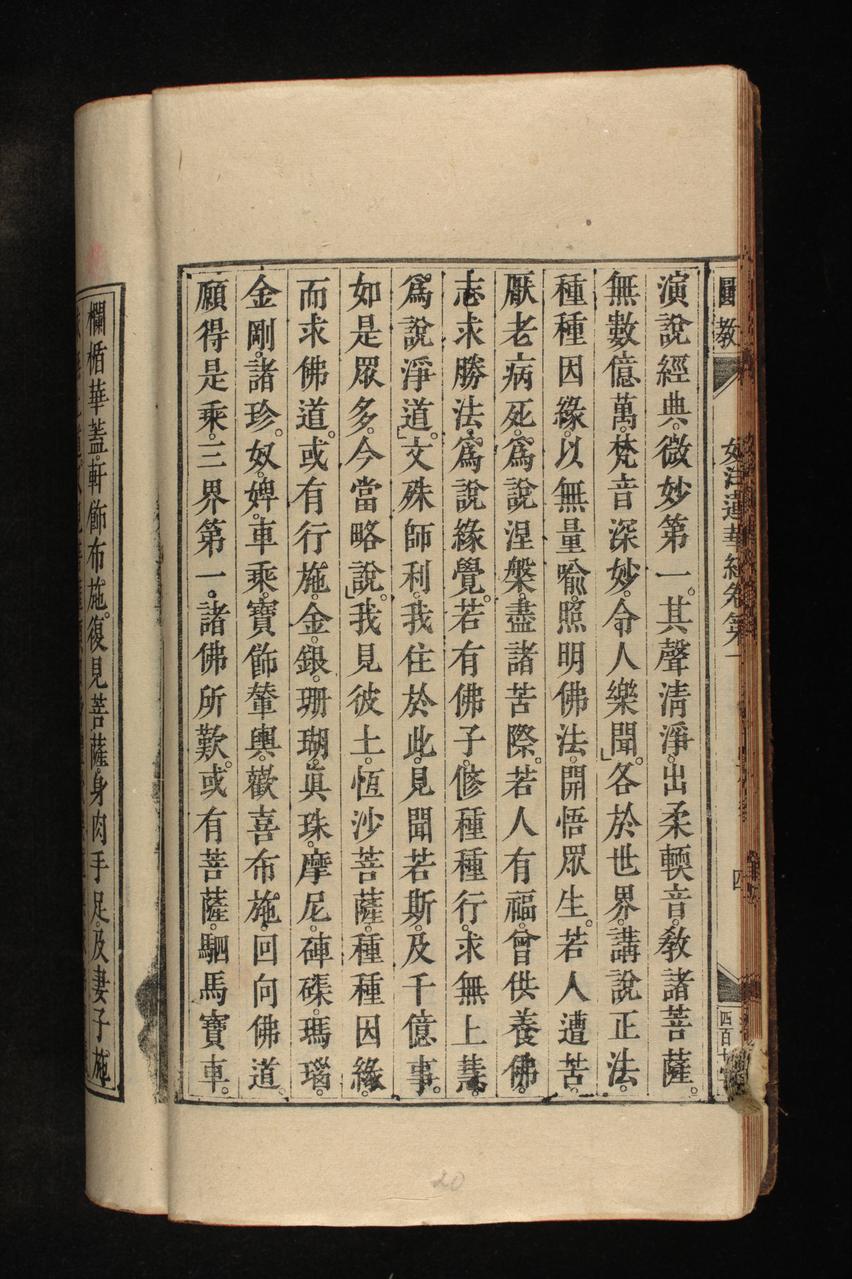 圓教
妙法蓮華經卷第一
四
演說經典。微妙第一。其聲清淨。出柔輭音。敎諸菩薩。
無數億萬。梵音深妙。令人樂聞。」各於世界。講說正法。
種種因緣。以無量喻。照明佛法。開悟眾生。若人遭苦。
厭老病死。爲說涅槃。盡諸苦際。若人有福。曾供養佛。
志求勝法。爲說緣覺。若有佛子。修種種行。求無上慧。
爲說淨道。」文殊師利。我住於此。見聞若斯。及千億事。
如是眾多。今當略說。」我見彼土。恆沙菩薩。種種因緣。
而求佛道。或有行施。金銀珊瑚。眞珠摩尼。硨磲瑪瑙。
金剛諸珍。奴婢車乘。寶飾輦輿。歡喜布施。回向佛道。
願得是乘。三界第一。諸佛所歎。或有菩薩。駟馬寶車。
欄楯華蓋。軒飾布施。復見菩薩。身肉手足。及妻子施。
20